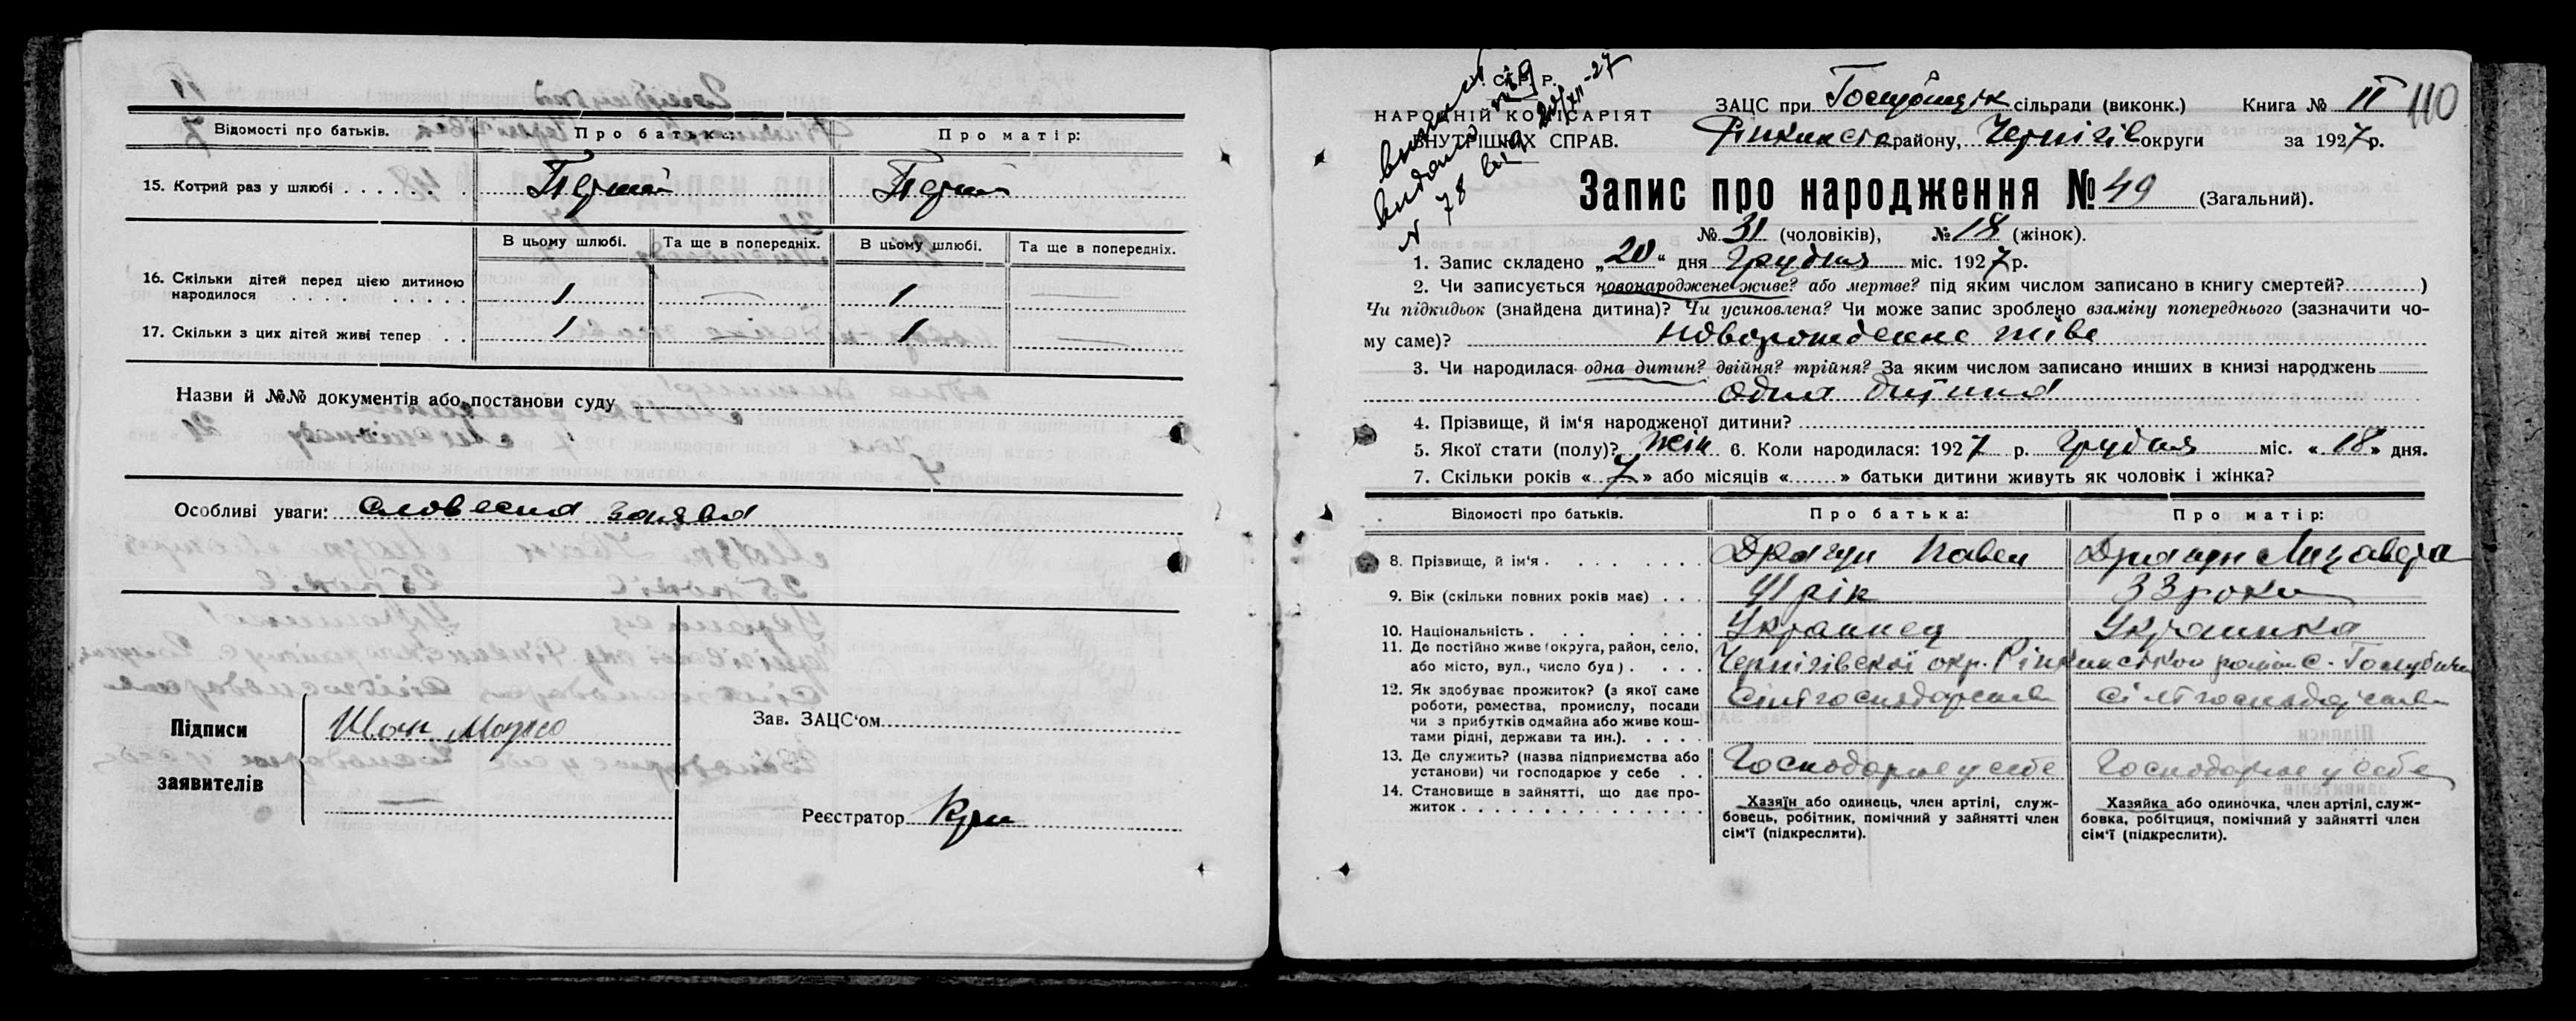 Відомості про батьків. Про батька: Про матір:
15. Котрий раз у шлюбі . . . . . . Перший Перший
В цьому шлюбі. Та ще в попередніх. В цьому шлюбі. Та ще в попередніх.
16. Скільки дітей перед цією дитиною
народилося . . . . . . . . . 1 — 1 —
17. Скільки з цих дітей живі тепер . . 1 — 1 —
Назви й №№ документів або постанови суду
Особливі уваги: словесна заява
Підписи
заявителів
Иван
Зав. ЗАЦС'ом
Реєстратор
110
У. С. Р. Р.
НАРОДНІЙ КОМІСАРІЯТ
ВНУТРІШНІХ СПРАВ.
N 78
ЗАЦС при сільради (виконк.) Книга № II
району, Чернігів округи за 1927 р.
Запис про народження № 49 (Загальний).
№ 31 (чоловіків), № 18 (жінок).
1. Запис складено „20“ дня Грудня міс. 1927 р.
2. Чи записується новонароджене живе? або мертве? під яким числом записано в книгу смертей? )
Чи підкидьок (знайдена дитина)? Чи усиновлена? Чи може запис зроблено взаміну попереднього (зазначити чо-
му саме)? новорожденне живе
3. Чи народилася одна дитин? двійня? трійня? За яким числом записано инших в книзі народжень
одна дитина
4. Прізвище, й ім'я народженої дитини?
5. Якої стати (полу)? жін 6. Коли народилася: 1927 р. грудня міс. «18» дня.
7. Скільки років «7» або місяців «.......» батьки дитини живуть як чоловік і жінка?
Відомості про батьків. Про батька: Про матір:
8. Прізвище, й ім'я . . . . . . . . Драгун Павел Драгун Лизавета
9. Вік (скільки повних років має) . . . 41 рік 33 роки
10. Національність . . . . . . . Українец Українка
11. Де постійно живе (округа, район, село,
або місто, вул., число буд) . . . . Чернігівської окр. Ріпкинського район с. Голубичи
12. Як здобуває прожиток? (з якої саме
роботи, ремества, промислу, посади
чи з прибутків одмайна або живе кош-
тами рідні, держави та ин.). . . . .
13. Де служить? (назва підприємства або
установи) чи господарює у себе . . Господарює у себе Господарює у себе
14. Становище в зайнятті, що дає про-
житок . . . . . . . . . . . . .
Хазяїн або одинець, член артілі, служ-
бовець, робітник, помічний у зайнятті член
сім'ї (підкреслити).
Хазяйка або одиночка, член артілі, служ-
бовка, робітниця, помічний у зайнятті член
сім'ї (підкреслити).